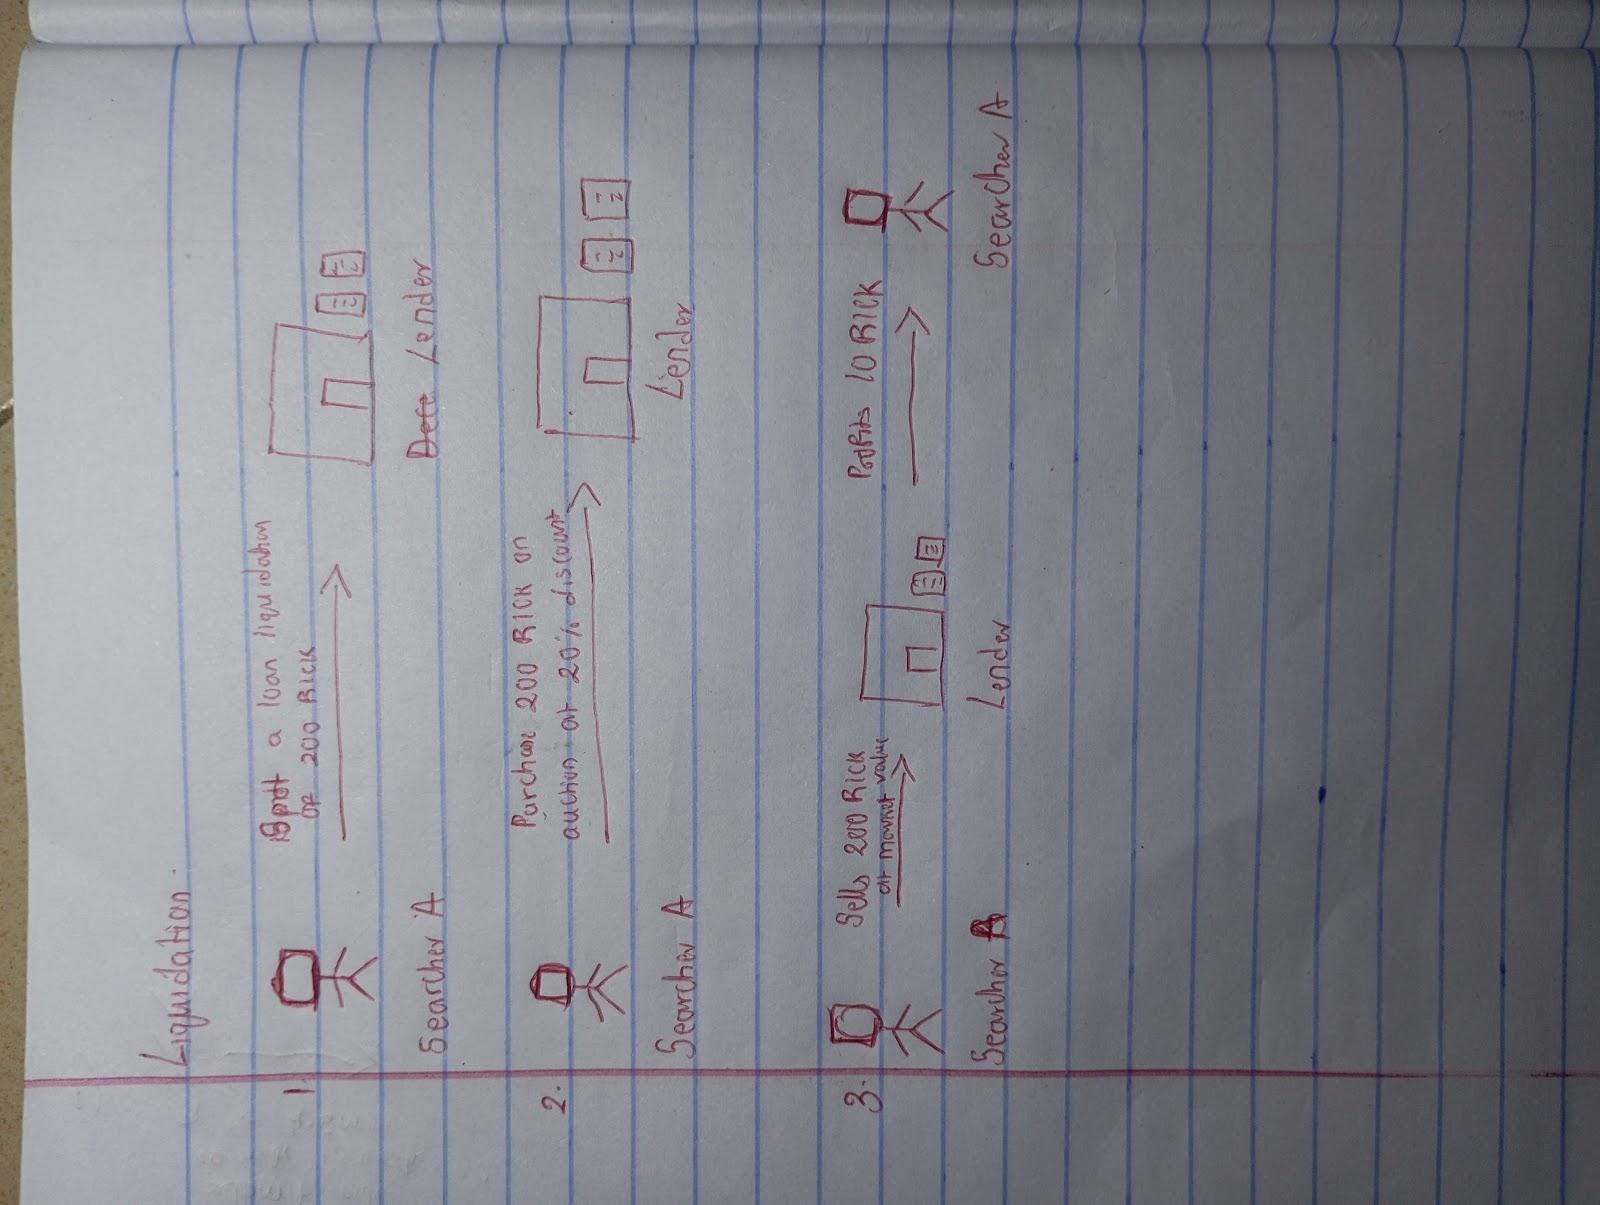 Liquidation.
1.
Spott a loan liquidation
of 200 RICK
Searcher A
Lender
2.
Purchase 200 RICK on
auction at 20% discount
Searcher A
Lender
3.
Sells 200 RICK
at market value
Profits 10 RICK
Searcher A
Lender
Searcher A